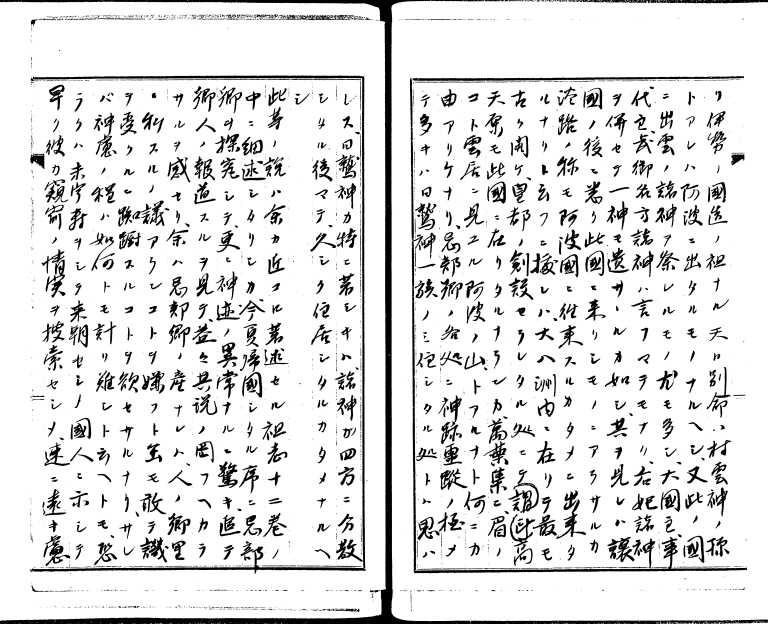 リ伊勢ノ國造ノ祖ナル天日別命ハ村雲神ノ孫
トアレハ阿波ニ出タルモノナルヘシ又此ノ國
ニ出雲ノ諸神ヲ祭レルモノ尤モ多シ大國主事
代主武御名方諸神ハ言フマテモナリ右妃諸神
ヲ併セテ一神モ遺サヽルカ如シ其ヲ見レハ讓
國ノ後ニ悉ク此國ニ来リシモノニアラサルカ
淡路ノ称モ阿波國ニ往来スルカタメニ出来タ
ルナリト云フニ據レハ大八洲内ニ在リテ最モ
古ク開ケ皇都ノ創設セラレタル処ニテ謂此高
天原モ此國ニ在リタルナランカ萬葉集ニ眉ノ
コト雲居ニ見ユル阿波ノ山トアルナト何ニカ
由アリケナリ忌部郷ノ各処ニ神跡霊蹤ノ極メ
テ多キハ日鷲神一族ノミ住シタル処トハ思ハ
レス日鷲神カ特ニ著シキハ諸神カ四方ニ分散
シタル後マテ久シク住居シタルカタメナルヘ
シ
此等ノ説ハ余カ近コロ著述セル祖志十二巻ノ
中ニ細述シタリシカ今夏帰國シタル序ニ忌部
郷ヲ探究シテ更ニ神迹ノ異常ナルニ驚キ追テ
郷人ノ報道スルヲ見テ益々其説ノ罔フヘカラ
サルヲ感セリ余ハ忌部郷ノ産ナレハ人ノ郷里
ニ私スルノ譏アランコトヲ嫌フト雖モ敢テ譏
ヲ受クルニ踟蹰スルコトヲ欲セサルナリサレ
バ神慮ノ程ハ如何トモ計リ難シト云ヘトモ恐
ラクハ未タ舟ヲシテ来朝セシノ國人ニ示シテ
早ク彼カ窺窬ノ情実ヲ捜索セシメ速ニ遠キ慮